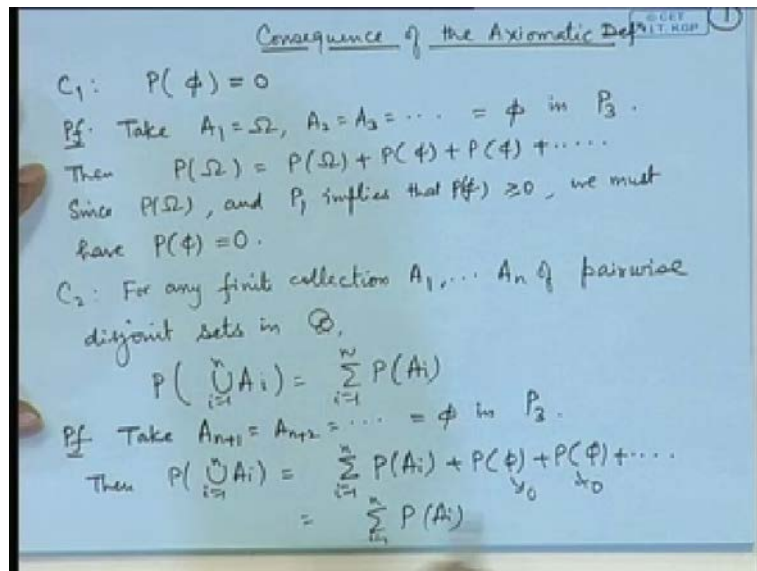 Consequence of the Axiomatic Defn
© CET
I.I.T. KGP
1
C₁: P(ϕ) = 0
Pf. Take A₁ = Ω, A₂ = A₃ = ⋯ = ϕ in P₃.
Then P(Ω) = P(Ω) + P(ϕ) + P(ϕ) + ⋯
Since P(Ω), and P₁ implies that P(ϕ) ≥ 0, we must
have P(ϕ) = 0.
C₂: For any finite collection A₁, ⋯ Aₙ of pairwise
disjoint sets in ℬ,
P(⋃ᵢ₌₁ⁿ Aᵢ) = ∑ᵢ₌₁ⁿ P(Aᵢ)
Pf Take Aₙ₊₁ = Aₙ₊₂ = ⋯ = ϕ in P₃.
Then P(⋃ᵢ₌₁ⁿ Aᵢ) = ∑ᵢ₌₁ⁿ P(Aᵢ) + P(ϕ) + P(ϕ) + ⋯
0 0
= ∑ᵢ₌₁ⁿ P(Aᵢ)